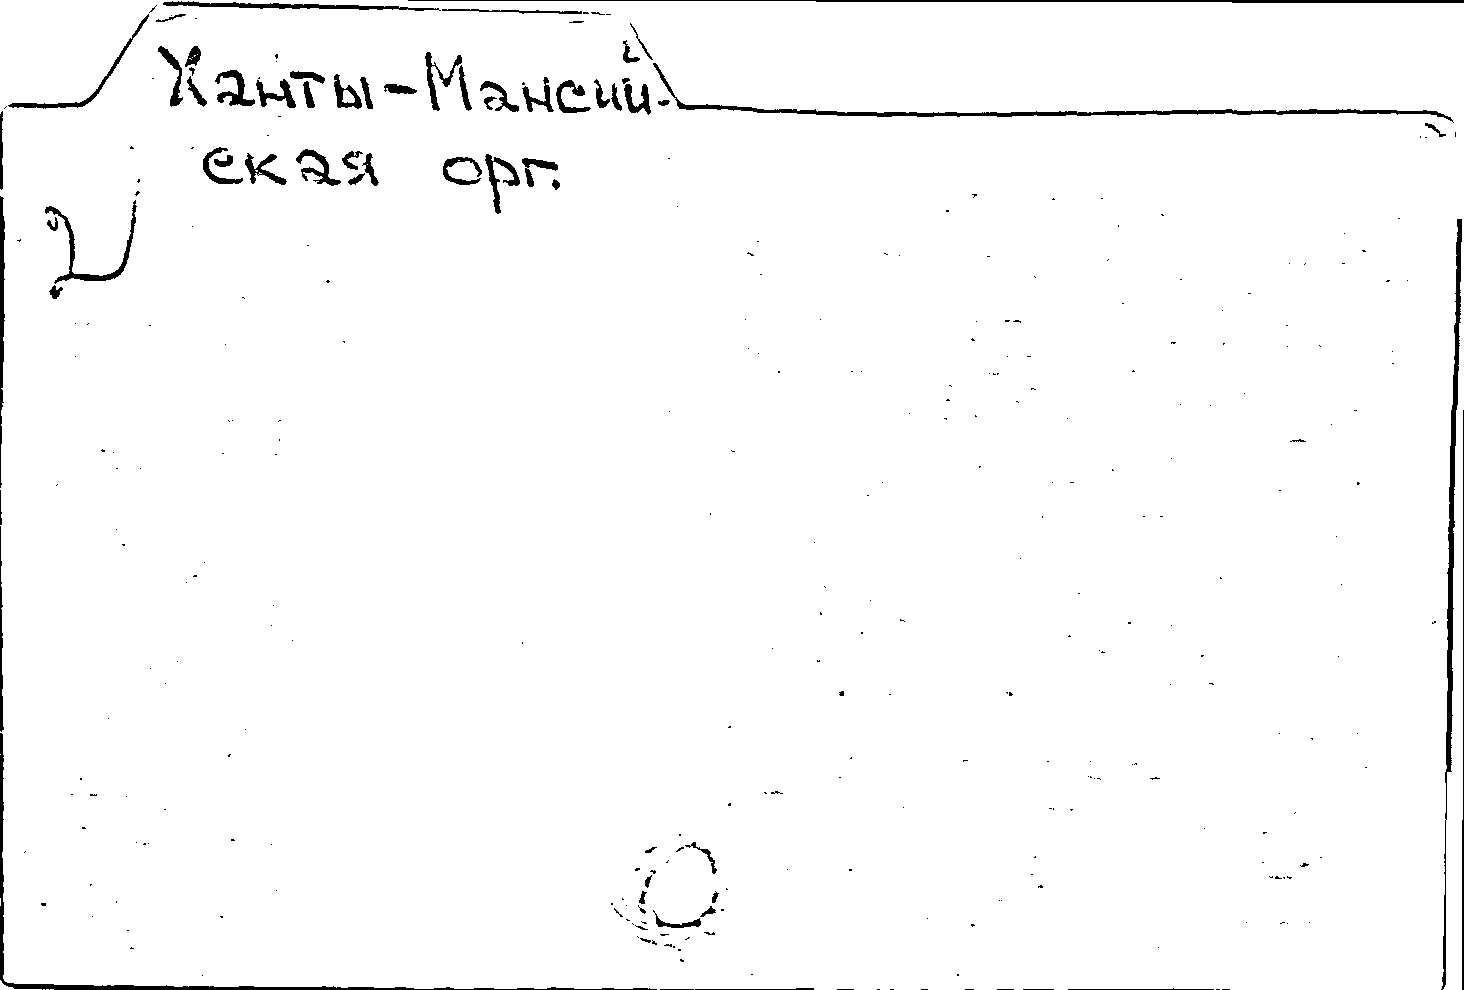 Ханты-Мансий-
ская орг.